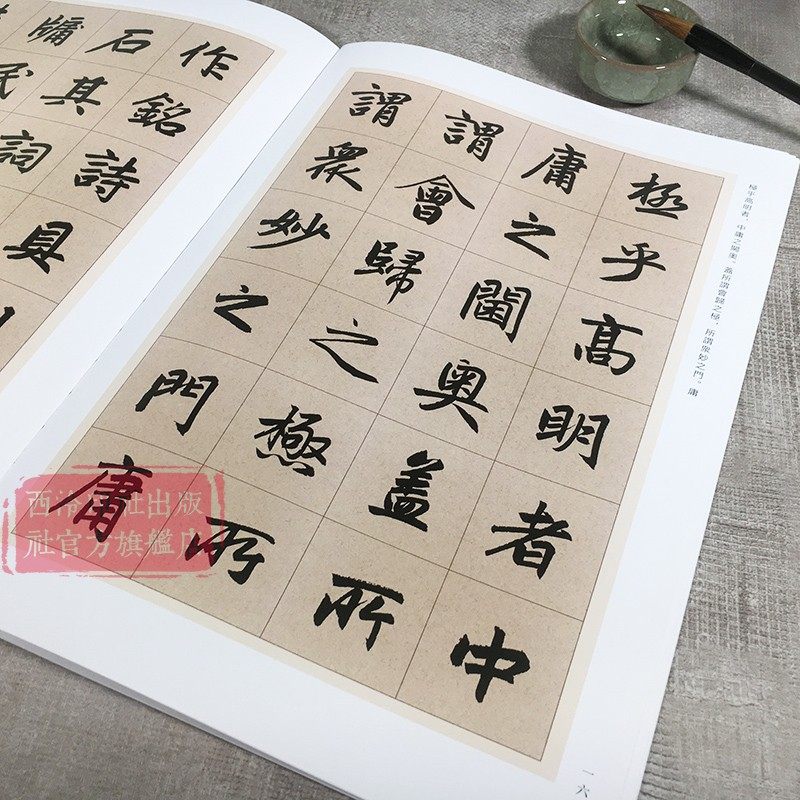 極乎高明者中
庸之閫奧盖所
謂會歸之極所
謂衆妙之門庸
極乎高明者，中庸之閫奧。蓋所謂會歸之極，所謂衆妙之門。庸
一六
作銘詩具
石其詞
牖民
西泠印社出版
社官方旗艦店